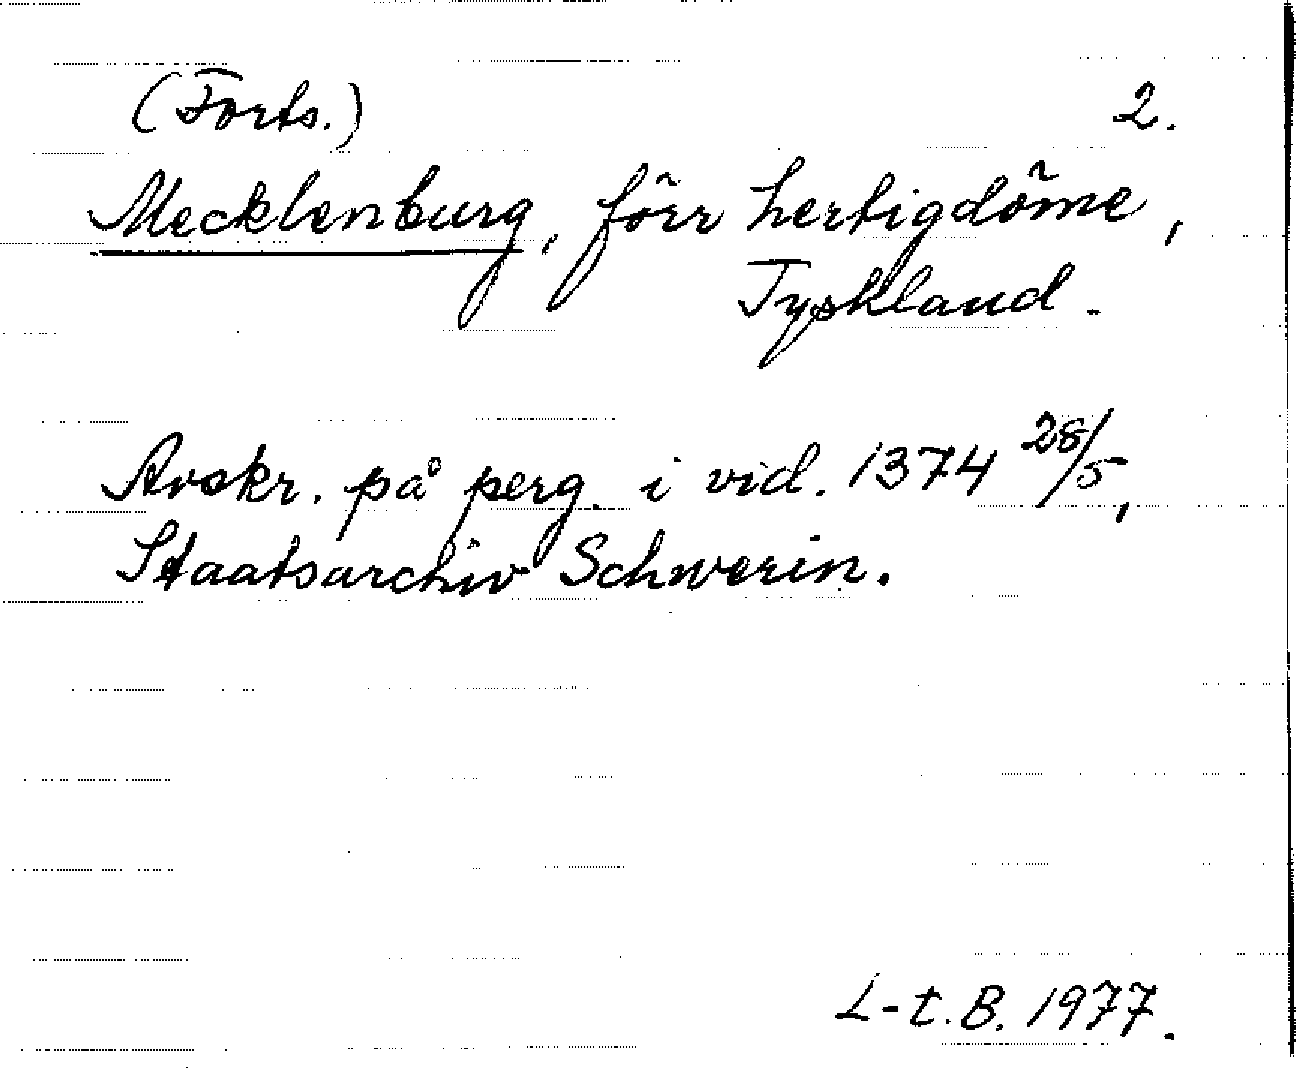 (Forts.) 2.
Mecklenburg, förr hertigdöme,
Tyskland.
Avskr. på perg. i vid. 1374 28/5,
Staatsarchiv Schwerin.
L-t. B. 1977.